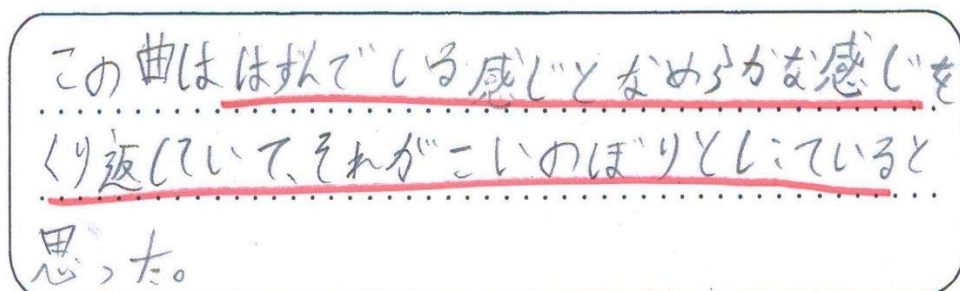 この曲ははずんでいる感じとなめらかな感じを
くり返していて、それがこいのぼりとしにていると
思った。